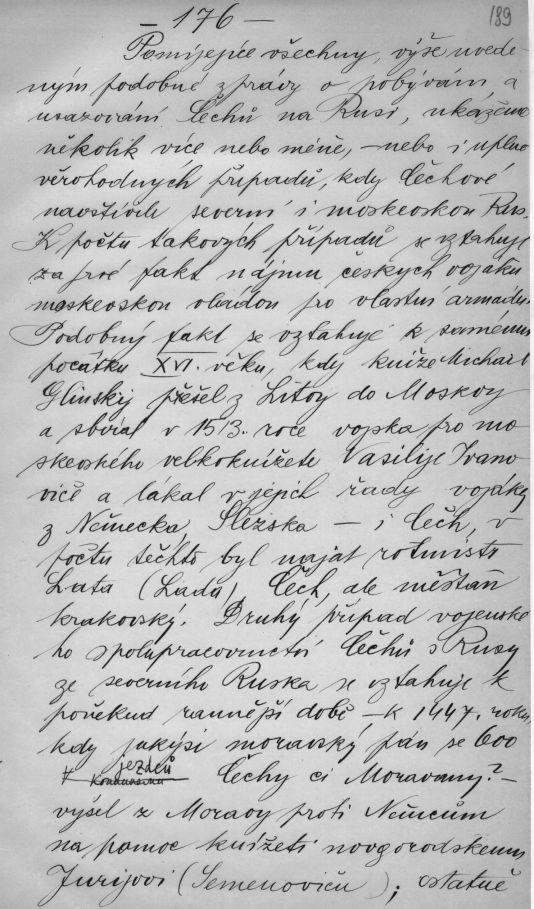 – 176 –
189
Pomíjejíce všechny, výše uvede-
ným podobné zprávy o pobývání a
usazování Čechů na Rusi, ukážeme
několik více nebo méně, – nebo i uplně
věrohodných případů, kdy Čechové
navštívili severní i moskevskou Rus.
K počtu takových případů se vztahuje
za prvé fakt nájmu českých vojáků
moskevskou vládou pro vlastní armádu.
Podobný fakt se vztahuje k samému
počátku XVI. věku, kdy kníže Michail
Glinskij přešel z Litvy do Moskvy
a sbíral v 1513. roce vojska pro mo-
skevského velkoknížete Vasilije Ivano
viče a lákal v jejich řady vojáky
z Německa, Slezska – i Čech, v
počtu těchto byl najat rotmistr
Lata (Lada), Čech, ale měšťan
krakovský. Druhý případ vojenské
ho spolupracovnictví Čechů s Rusy
ze severního Ruska se vztahuje k
poněkud rannější době – k 1447. roku,
kdy jakýsi moravský pán se 600
jezdců
Čechy či Moravany? –
vyšel z Moravy proti Němcům
na pomoc knížeti novgorodskému
Jurijovi (Semenoviču); ostatně